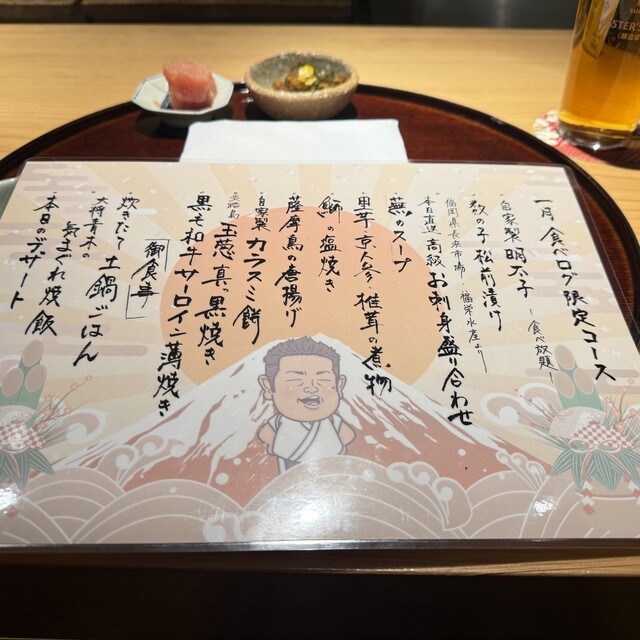 一月 食べログ限定コース
自家製明太子 ー食べ放題ー
数の子松前漬け
福岡県長浜市場 福栄水産より
本日直送 高級お刺身盛り合わせ
蕪のスープ
里芋 京人参 椎茸の煮物
鰤の塩焼き
薩摩鳥の唐揚げ
自家製カラスミ餅
淡路島 玉葱 真っ黒焼き
黒毛和牛サーロイン薄焼き
御食事
炊きたて土鍋ごはん
大将青木の気まぐれ焼飯
本日のデザート